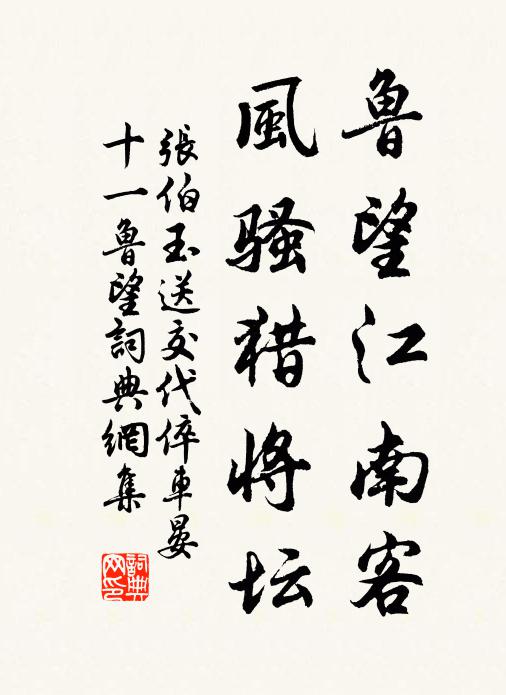 魯望江南客
風骚猎將坛
張伯玉送交代倅車晏
十一魯望詞典網集
詞典
网印